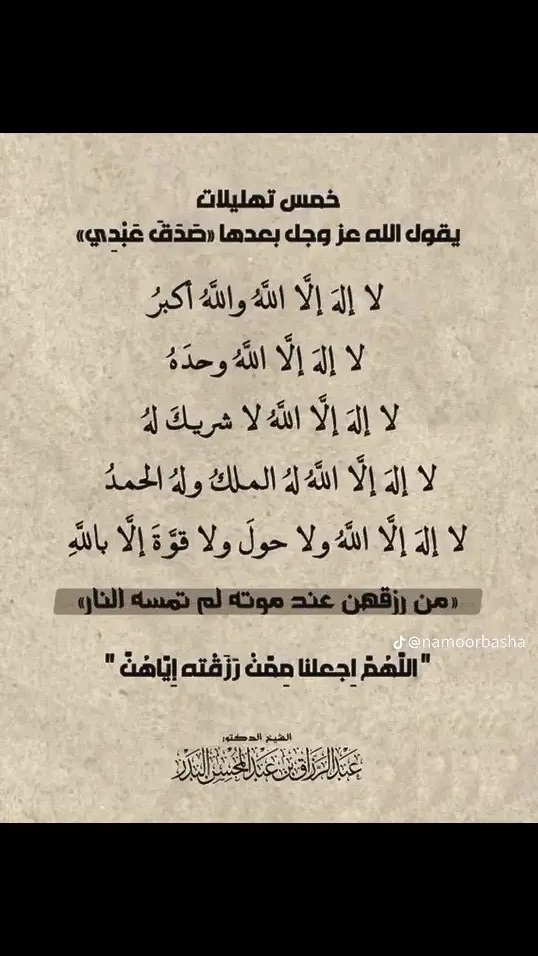 خمس تهليلات
يقول الله عز وجل بعدها «صَدَقَ عَبْدِي»
لا إلهَ إلَّا اللَّهُ واللَّهُ أكبرُ
لا إلهَ إلَّا اللَّهُ وحدَهُ
لا إلهَ إلَّا اللَّهُ لا شريكَ لهُ
لا إلهَ إلَّا اللَّهُ لهُ الملكُ ولهُ الحمدُ
لا إلهَ إلَّا اللَّهُ ولا حولَ ولا قوَّةَ إلَّا باللَّهِ
«من رزقهن عند موته لم تمسه النار»
@namoorbasha
"اللّهُمّ اِجعلنا مِمّنْ رَزَقْته اِيّاهُنّ"
الشيخ الدكتور
عَبْدُ الرَّزَّاقِ بْنُ عَبْدِ المُحْسِنِ البَدْر